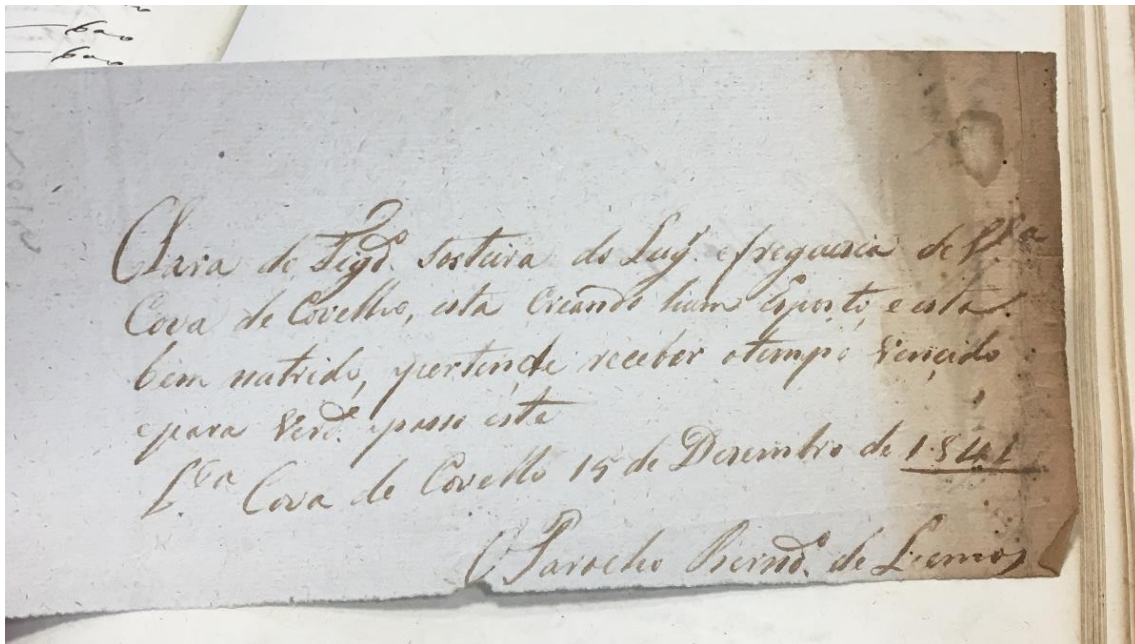 600
600
Clara de Figd.º Solteira do Lug.r e freguezia de V.ª
Cova de Covello, esta Creando hum Exposto, e esta
bem nutrido, pertende receber o tempo Vencido
e para Verd.e passo este
V.ª Cova de Covello 15 de Dezembro de 1841
O Parocho Bernd.º de Lemos